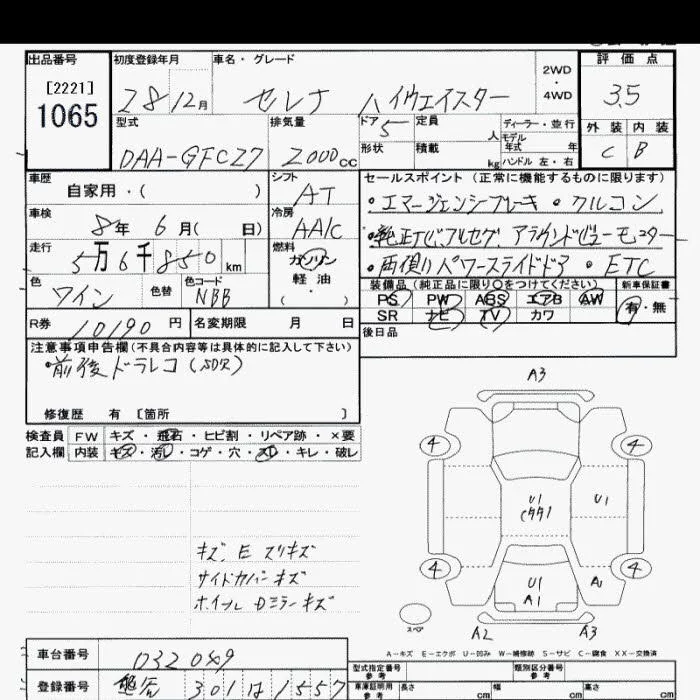 出品番号 初度登録年月 車名・グレード 2WD・4WD 評価点
[2221]
1065 28 12月 セレナ ハイウェイスター 3.5
型式 排気量 ドア 定員 人 ディーラー・並行 外装 内装
DAA-GFC27 2000cc 5 形状 積載 kg モデル年式 年 ハンドル 左・右 C B
車歴 シフト セールスポイント(正常に機能するものに限ります)
自家用・( ) AT ・エマージェンシーブレーキ ・クルコン
車検 冷房
8年 6月( 日) AA/C ・純正TVフルセグ アラウンドビューモニター
走行 燃料
5万6千850km ガソリン ・両側パワースライドドア ・ETC
軽油
色 色替 色コード ・( ) 装備品(純正品に限り○をつけてください) 新車保証書
ワイン NBB PS PW ABS エアB AW 有・無
SR ナビ TV カワ
R券 10190円 名変期限 月 日 後日品
注意事項申告欄(不具合内容等は具体的に記入して下さい)
・前後ドラレコ(社外)
修復歴 有 [箇所 ]
検査員 FW キズ・飛石・ヒビ割・リペア跡・×要
記入欄 内装 キズ・汚レ・コゲ・穴・スレ・キレ・破レ
A3
4 4
U1 U1
4 4
U1 A1
A1
スペア
A2 A3
キズ、E スリキズ
サイドカバーキズ
ホイール Dミラーキズ
A-キズ E-エクボ U-凹み W-補修跡 S-サビ C-腐食 XX-交換済
車台番号 032049
型式指定番号 参考 類別区分番号 参考
登録番号 301 は 1557
車庫証明用 参考 長さ cm 幅 cm 高さ cm